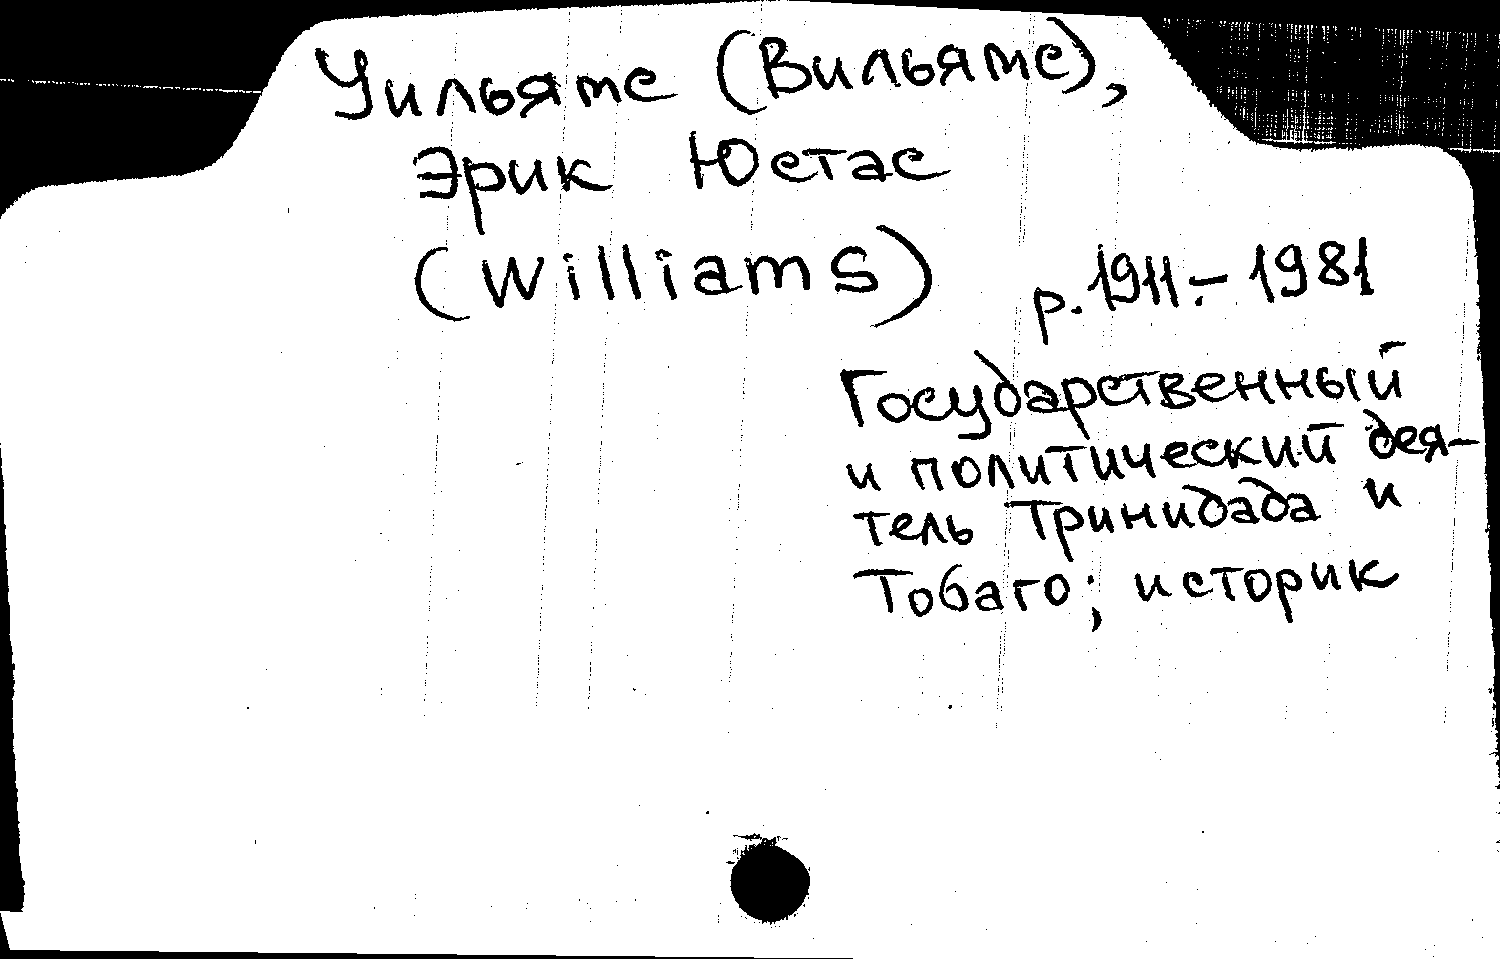 Уильямс (Вильямс),
Эрик Юстас
(Williams)
р. 1911.- 1981
Государственный
и политический дея-
тель Тринидада и
Тобаго; историк